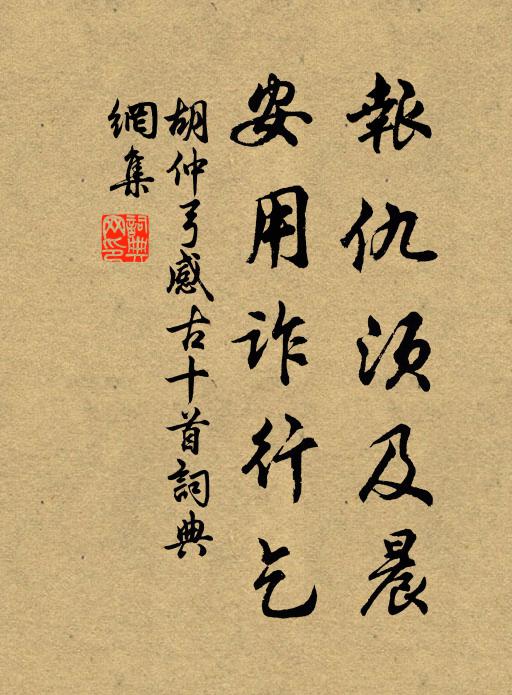 報仇須及晨
安用詐行乞
胡仲弓感古十首詞典
網集
詞典
网印